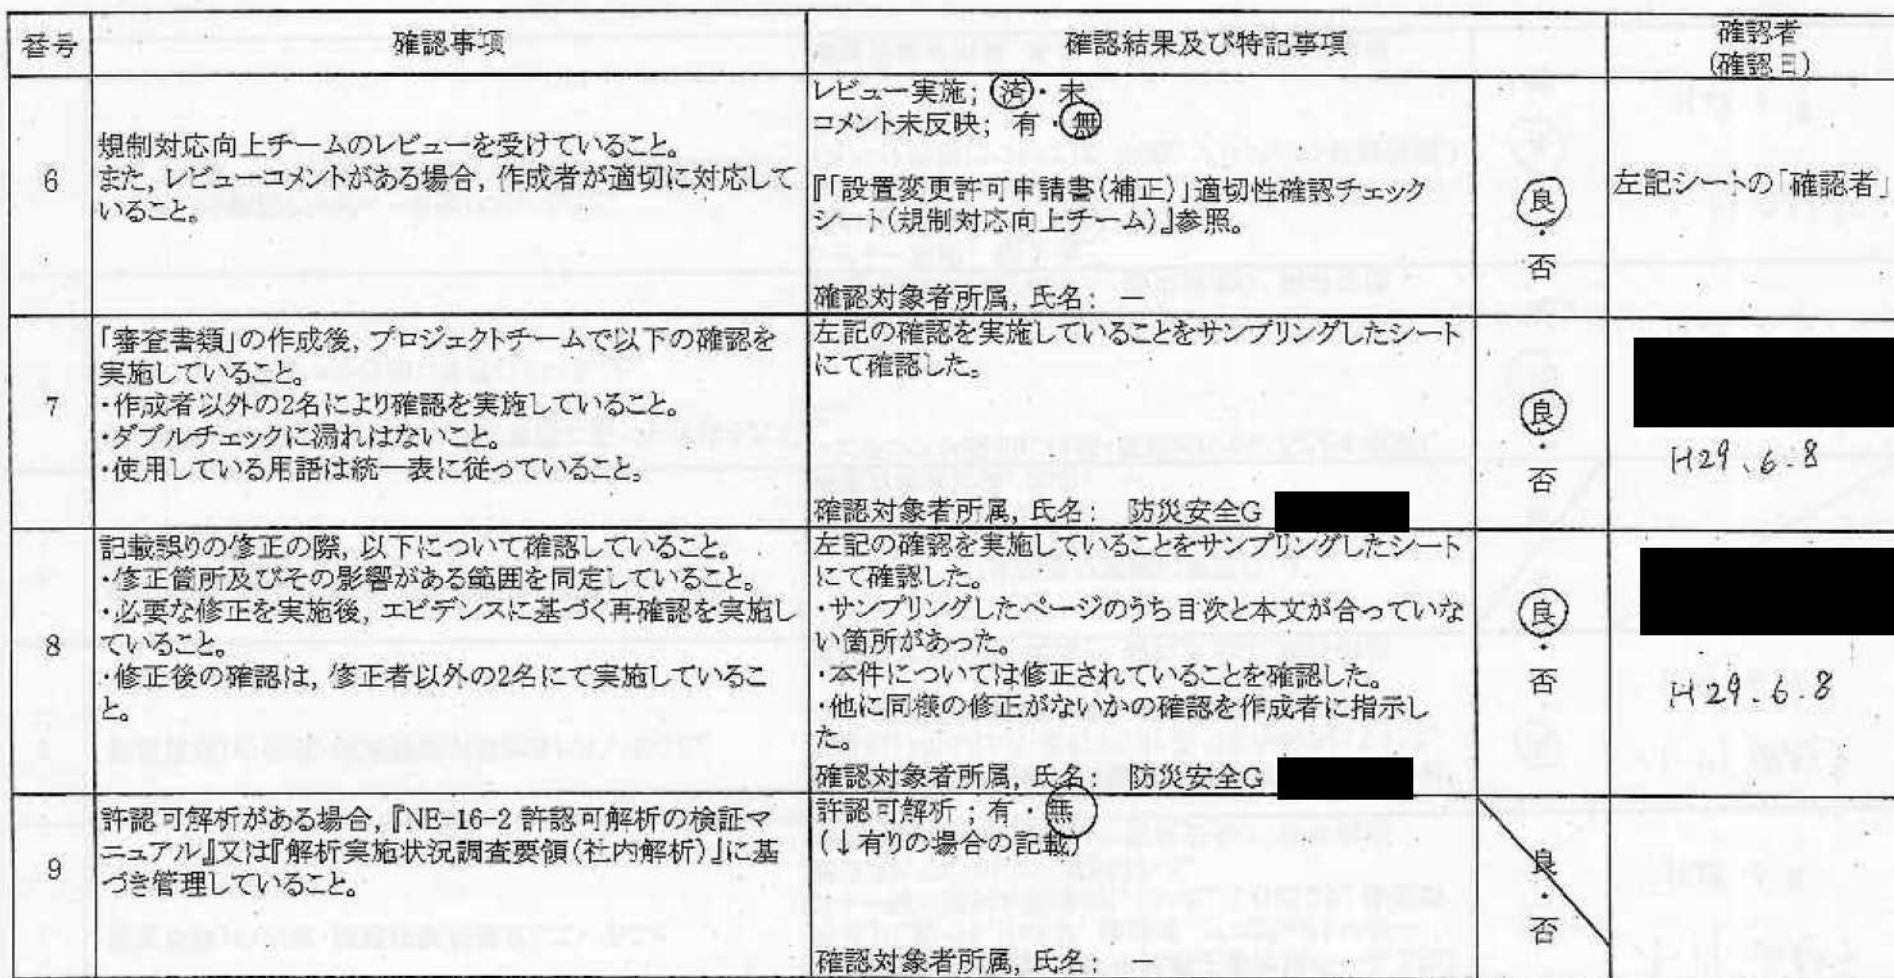 番号
確認事項
確認結果及び特記事項
確認者
(確認日)
6
規制対応向上チームのレビューを受けていること。
また，レビューコメントがある場合，作成者が適切に対応して
いること。
レビュー実施； 済・未
コメント未反映； 有・無
『「設置変更許可申請書(補正)」適切性確認チェック
シート(規制対応向上チーム)』参照。
確認対象者所属，氏名： －
良
・
否
左記シートの「確認者」
7
「審査書類」の作成後，プロジェクトチームで以下の確認を
実施していること。
・作成者以外の2名により確認を実施していること。
・ダブルチェックに漏れはないこと。
・使用している用語は統一表に従っていること。
左記の確認を実施していることをサンプリングしたシート
にて確認した。
確認対象者所属，氏名： 防災安全G
良
・
否
H29.6.8
8
記載誤りの修正の際，以下について確認していること。
・修正箇所及びその影響がある範囲を同定していること。
・必要な修正を実施後，エビデンスに基づく再確認を実施し
ていること。
・修正後の確認は，修正者以外の2名にて実施しているこ
と。
左記の確認を実施していることをサンプリングしたシート
にて確認した。
・サンプリングしたページのうち目次と本文が合っていな
い箇所があった。
・本件については修正されていることを確認した。
・他に同様の修正がないかの確認を作成者に指示し
た。
確認対象者所属，氏名： 防災安全G
良
・
否
H29.6.8
9
許認可解析がある場合，『NE-16-2 許認可解析の検証マ
ニュアル』又は『解析実施状況調査要領(社内解析)』に基
づき管理していること。
許認可解析；有・無
(↓有りの場合の記載)
確認対象者所属，氏名： －
良
・
否